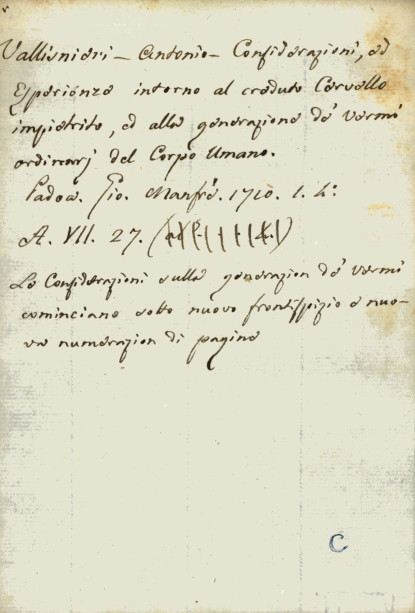 Vallisnieri - Antonio - Considerazioni, ed
Esperienze intorno al creduto Cervello
impietrito, ed alla generazione de' vermi
ordinarj del Corpo Umano.
Padoa. Gio. Manfré. 1710. 1. 4:
A. VII. 27.
Le Considerazioni sulla generazion de' vermi
cominciano sotto nuovo frontispizio e nuo-
va numerazion di pagine
C